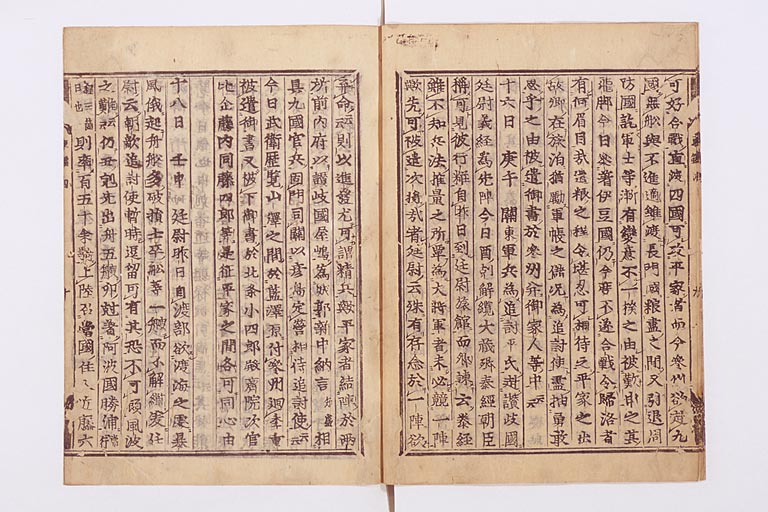 可好合戰直渡四國可攻平家者而今參州欲渡九
國無船與不進適雖渡長門國粮盡之間又引退周
防國訖軍士等漸有變意不一揆之由被歎申之其
飛脚今日參著伊豆國仍今度不遂合戰令歸洛者
有何眉目哉遣粮之程令堪忍可相待之平家之出
故鄕在旅泊猶勵軍帳之儲況爲追討使盍抽勇敢
思乎之由被遣御書於參州并御家人等中云々
十六日 庚午 關東軍兵爲追討平氏赴讚岐國
廷尉義經爲先陣今日酉剋解纜大藏卿泰經朝臣
稱可見彼行粧自昨日到廷尉旅館而卿諫云泰經
雖不知兵法推量之所覃爲大將軍者未必競一陣
歟先可被遣次將哉者廷尉云殊有存念於一陣欲
棄命云々則以進發尤可謂精兵歟平家者結陣於兩
所前內府以讚岐國屋嶋爲城郭新中納言知盛相
具九國官兵固門司關以彦嶋定營相待追討使云々
今日武衛歴覽山澤之間於藍澤原付參州廻李重
被遣御書又被下御書於北條小四郎殿齋院次官
比企藤內同藤四郎等是征平家之間各可同心由
十八日 壬申 廷尉昨日自渡部欲渡海之處暴
風俄起舟船多破損士卒船等一艘而不解纜爰廷
尉云朝敵追討使暫時逗留可有其恐不可顧風波
之難云々仍丑剋先出舟五艘卯剋著阿波國勝浦
則率百五十餘騎上陸召當國住人近藤六